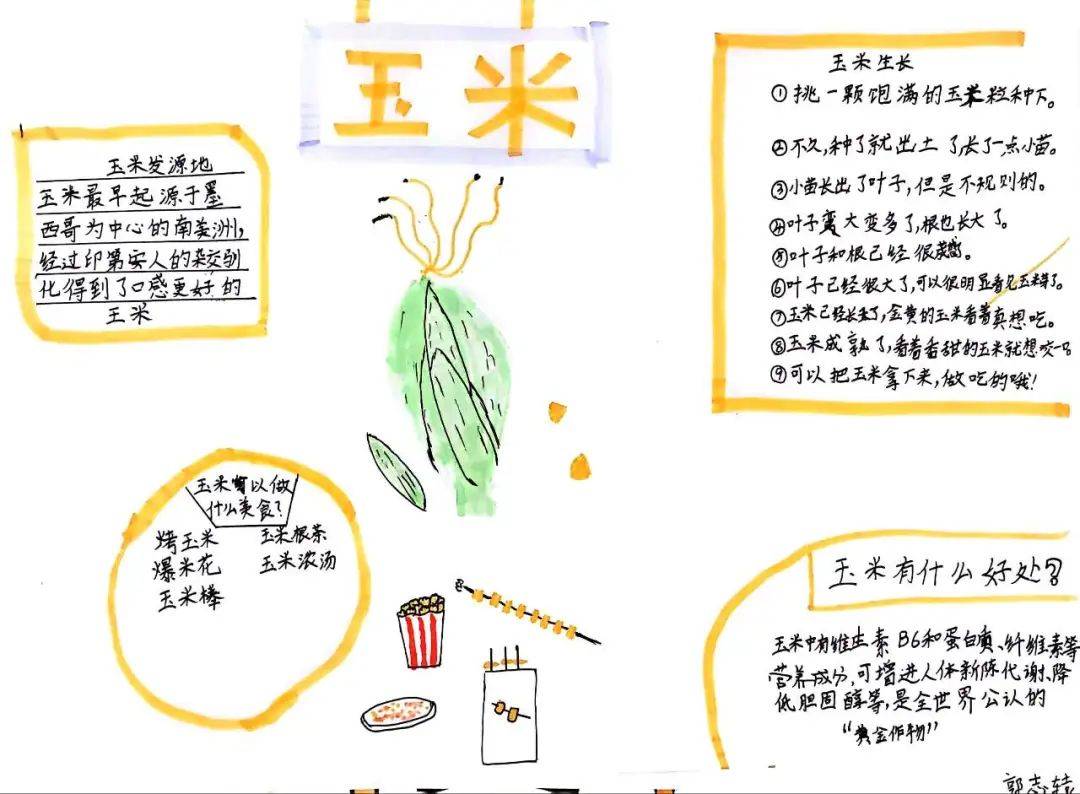 玉米
玉米发源地
玉米最早起源于墨
西哥为中心的南美洲,
经过印第安人的杂交驯
化得到了口感更好的
玉米
玉米生长
①挑一颗饱满的玉米粒种下。
②不久,种子就出土了,长了一点小苗。
③小苗长出了叶子,但是不规则的。
④叶子变大变多了,根也长大了。
⑤叶子和根已经很
⑥叶子已经很大了,可以很明显看见玉米了。
⑦玉米已经长大了,金黄的玉米看着真想吃。
⑧玉米成熟了,看着香甜的玉米就想咬一口
⑨可以把玉米拿下来,做吃的哦!
玉米可以做
什么美食?
烤玉米 玉米根茶
爆米花 玉米浓汤
玉米棒
玉米有什么好处?
玉米中有维生素B6和蛋白质、纤维素等
营养成分,可增进人体新陈代谢、降
低胆固醇等,是全世界公认的
“黄金作物”
郭志